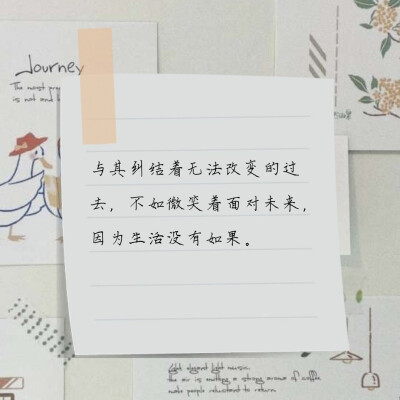 Journey
The most pre
is not and
与其纠结着无法改变的过
去，不如微笑着面对未来，
因为生活没有如果。
Light elegant light music.
the air is emitting a strong aroma of coffee
make people reluctant to return